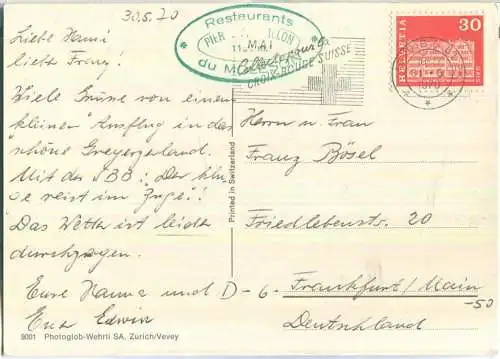 30.5.70
Restaurants
PIER
du M
MAI
Collecte
CROIX-ROUGE SUISSE
HELVETIA
30
Liebe Hanni
lieber Franz!
Viele Grüsse von einem
kleinen Ausflug in das
schöne Greyerzerland.
Mit der SBB: "Der klu-
ge reist im Zuge!"
Das Wetter ist leider
durchzogen.
Eure Hanne und
Euer Edwin
Printed in Switzerland
Herrn u. Frau
Franz Bösel
Friedlebenstr. 20
D - 6 - Frankfurt / Main
-50
Deutschland
9001 Photoglob-Wehrli SA, Zürich/Vevey